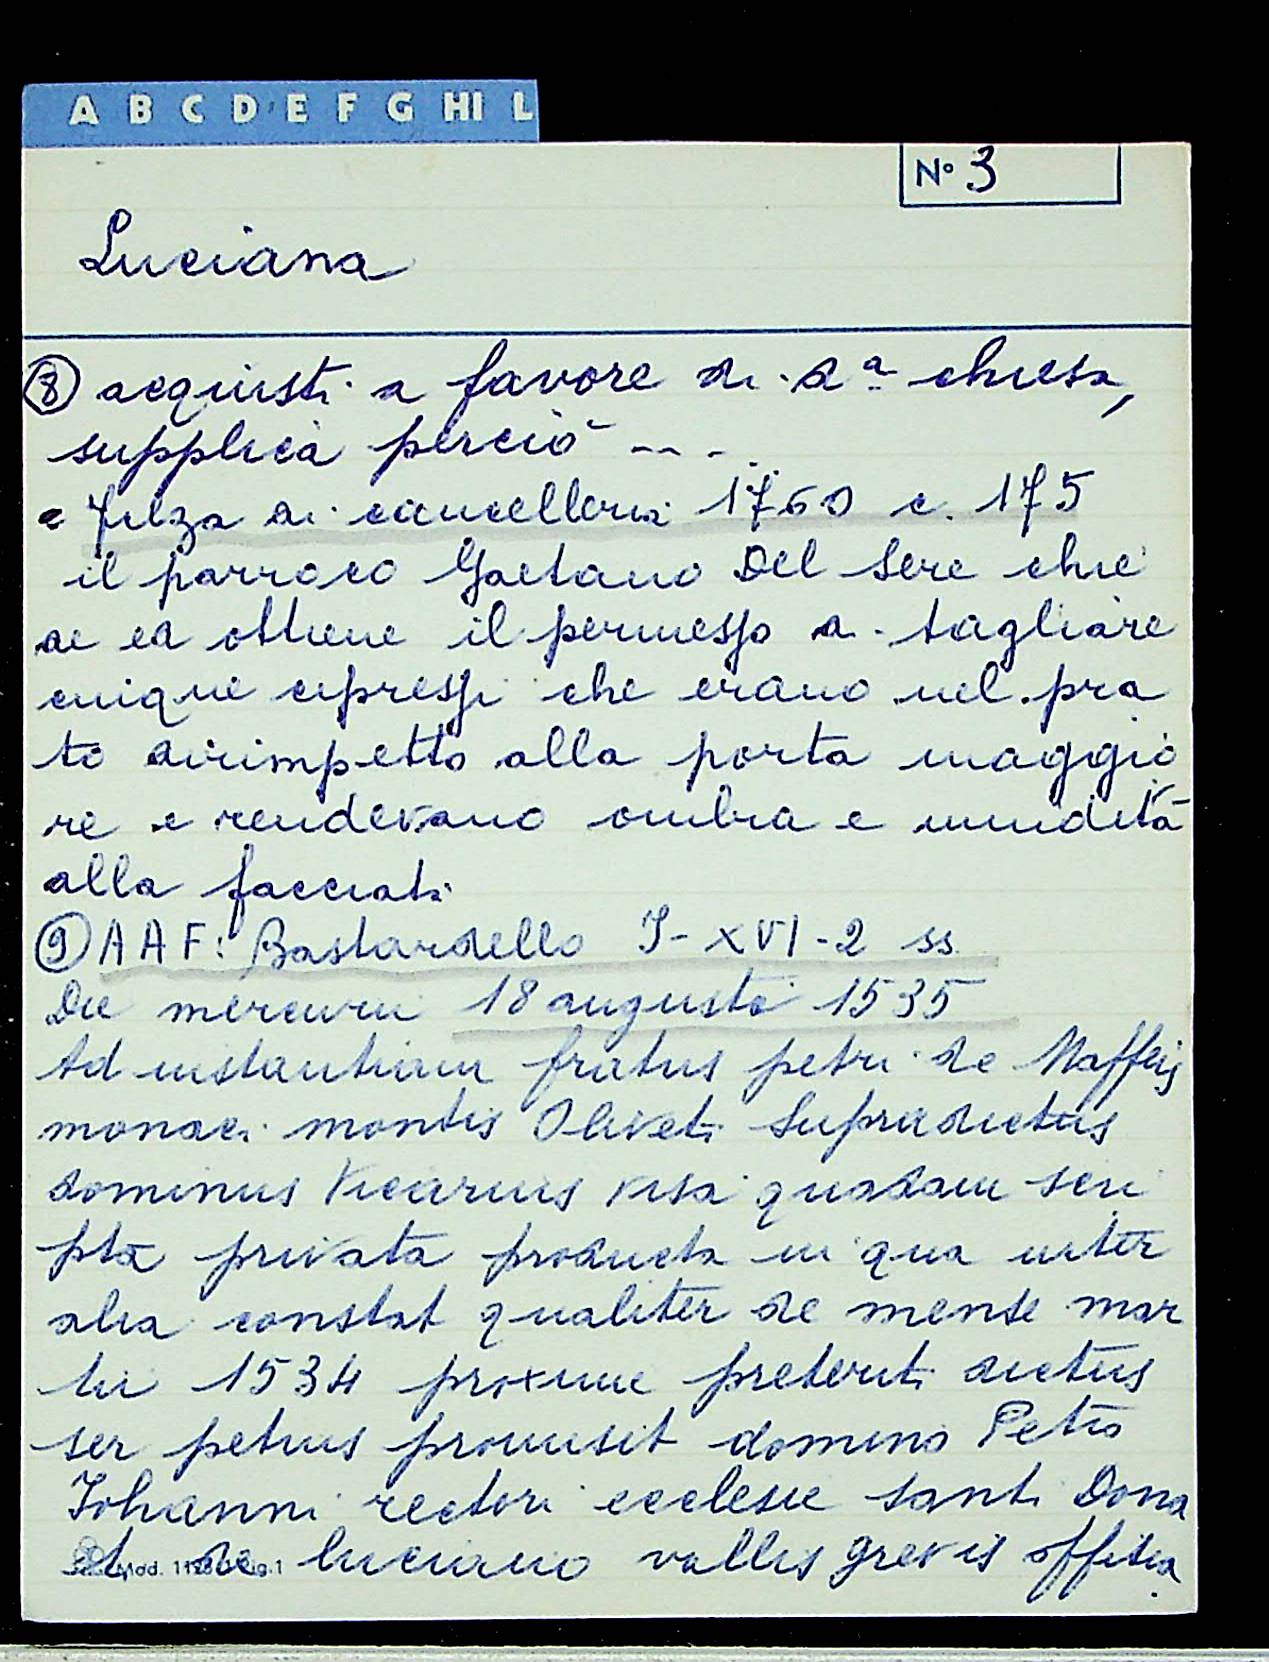 A B C D E F G HI L
N° 3
Luciana
⑧ acquisti a favore di dª chiesa,
supplica perciò - - -
= Filza di cancelleria 1760 c. 175
il parroco Gaetano Del Sere chie
de ed ottiene il permesso di tagliare
cinque cipressi che erano nel pra
to dirimpetto alla porta maggio
re e rendevano ombra e umidità
alla facciata
⑨ AAF: Bastardello I-XVI-2 ss
Die mercurii 18 augusti 1535
Ad instantiam fratris petri de Maffeis
monaci montis Oliveti Supradictus
dominus Vicarius visa quadam scri
pta privata producta in qua inter
alia constat qualiter de mense mar
tii 1534 proxime preteriti dictus
ser petrus promisit domino Petro
Iohanni rectori ecclesie santi Dona
ti de luciano vallis grevis offitia